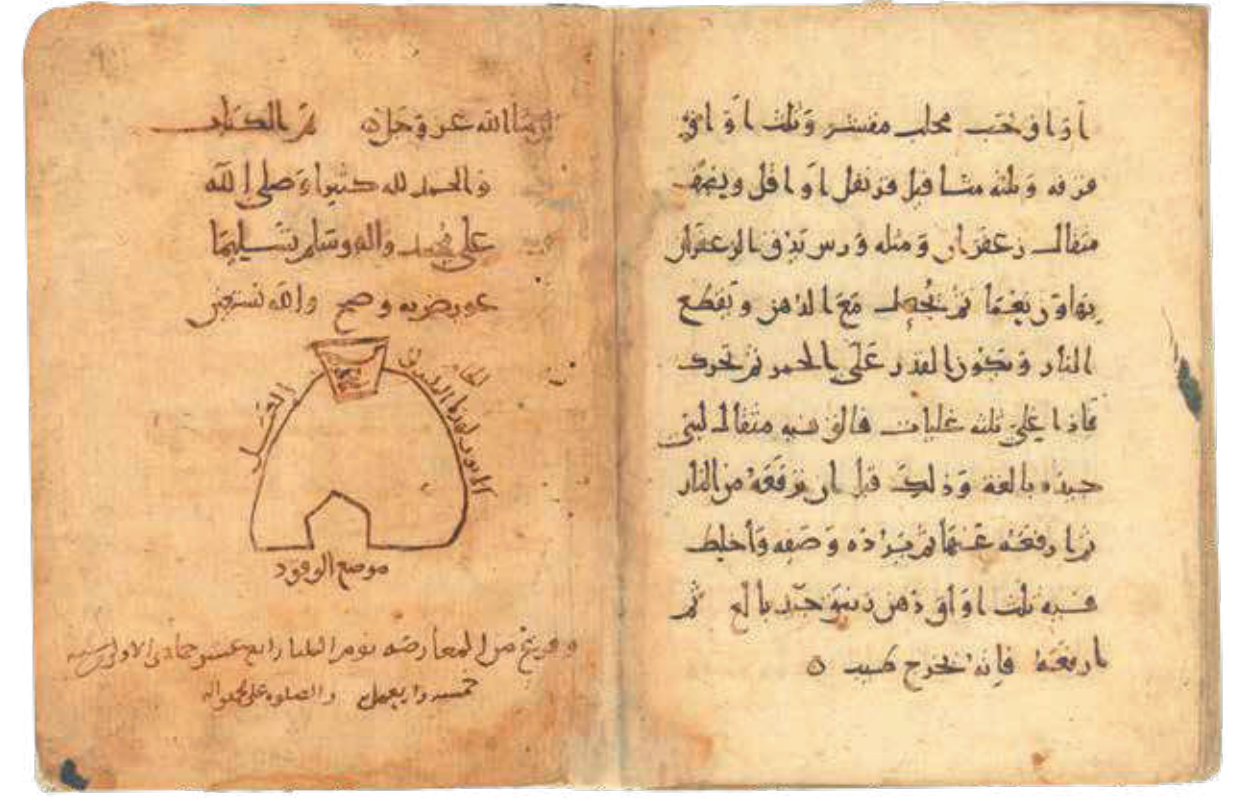 اواق حب محلب مقشر وثلث اواقي
قرفه وثلثه مثاقيل قرنفل اواقل ونصف
مثقال زعفران ومثله ورس تدق الزعفران
ثم تجعل مع الدهن وتقطع
النار وتكون القدر على الجمر ثم تحرك
فاذا غلي ثلثه غليات فالق فيه مثقال لبني
جيده بالغه وذلك قبل ان ترفعه من النار
ثم ارفعه عنها ثم برده وصفه واخلط
فيه ثلث اواق دهن زيبق جيد بالغ ثم
ارفعه فانه يخرج طيب ه
ان شا الله عز وجل ه تم الكتاب
والحمد لله كثيرا وصلى الله
على محمد واله وسلم تسليما
عورض به وصح والله نستعين
موضع الوقود
وفرغ من المعارضه يوم الثلثا رابع عشر جمادى الاولى سنه
خمسه واربعين والصلوه على محمد واله